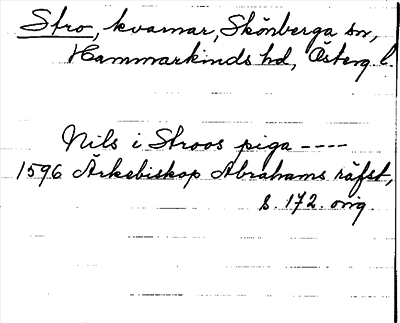 Stro, kvarnar, Skönberga sn,
Hammarkinds hd, Österg. l.
Nils i Stroos piga ----
1596 Ärkebiskop Abrahams räfst,
s. 172. orig.